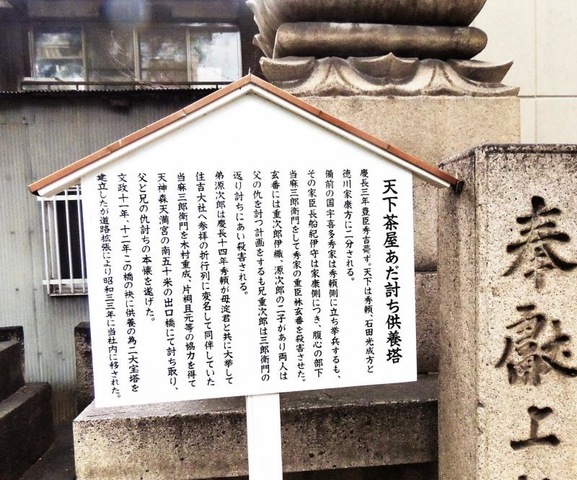 天下茶屋あだ討ち供養塔
慶長三年豊臣秀吉薨ず。天下は秀頼、石田光成方と
徳川家康方に二分される。
備前の国宇喜多秀家は秀頼側に立ち挙兵するも、
その家臣長船紀伊守は家康側につき、腹心の部下
当麻三郎衛門をして秀家の重臣林玄番を殺害させた。
玄番には重次郎伊織、源次郎の二子があり両人は
父の仇を討つ計画をするも兄重次郎は三郎衛門の
返り討ちにあい殺害される。
弟源次郎は慶長十四年秀頼が母淀君と共に大挙して
住吉大社へ参拝の折行列に変名して同伴していた
当麻三郎衛門を木村重成、片桐且元等の協力を得て
天神森天満宮の南五十米の出口橋にて討ち取り、
父と兄の仇討ちの本懐を遂げた。
文政十一年、十二年この橋の袂に供養の為二大宝塔を
建立したが道路拡張により昭和三三年に当社内に移された。
奉獻上